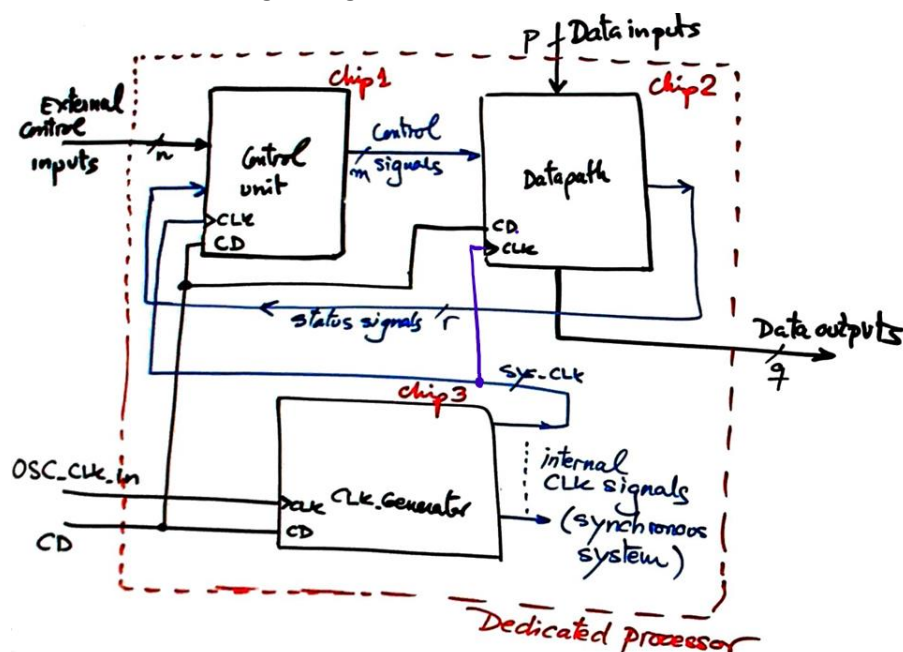 P Data inputs
Chip1
Chip2
External
Control
inputs
n
Control
unit
CLK
CD
Control
m signals
Datapath
CD.
CLK
status signals r
Data outputs
q
SYS_CLK
Chip3
OSC_CLK_in
CD
CLK
CLK_Generator
CD
internal
CLK signals
(synchronous
system)
Dedicated processor